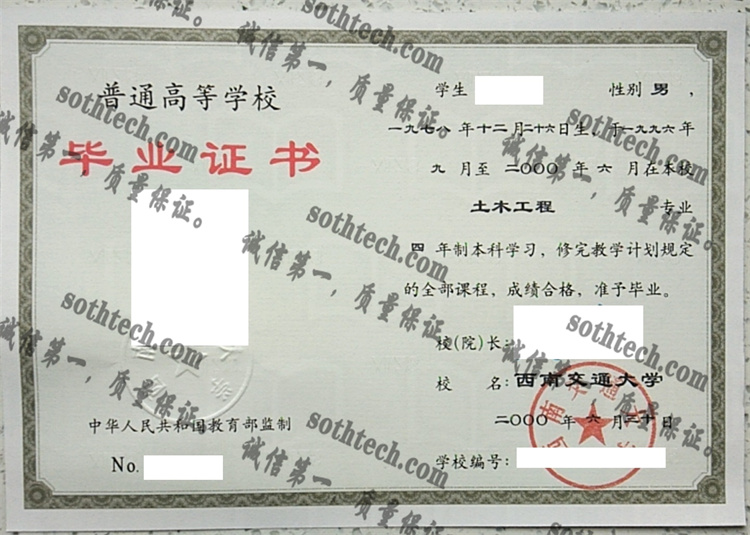 普通高等学校
毕业证书
中华人民共和国教育部监制
No.
学生 性别 男 ，
一九七八 年十二月二十六日生，于一九九六年
九 月至 二〇〇〇 年 六 月在本校
土木工程 专业
四 年制本科学习，修完教学计划规定
的全部课程，成绩合格，准予毕业。
校(院)长：
校 名：西南交通大学
二〇〇〇 年 六 月二十日
学校编号：
sothtech.com
诚信第一，质量保证。
sothtech.com
诚信第一，质量保证。
sothtech.com
诚信第一，质量保证。
sothtech.com
诚信第一，质量保证。
sothtech.com
诚信第一，质量保证。
sothtech.com
诚信第一，质量保证。
sothtech.com
诚信第一，质量保证。
sothtech.com
诚信第一，质量保证。